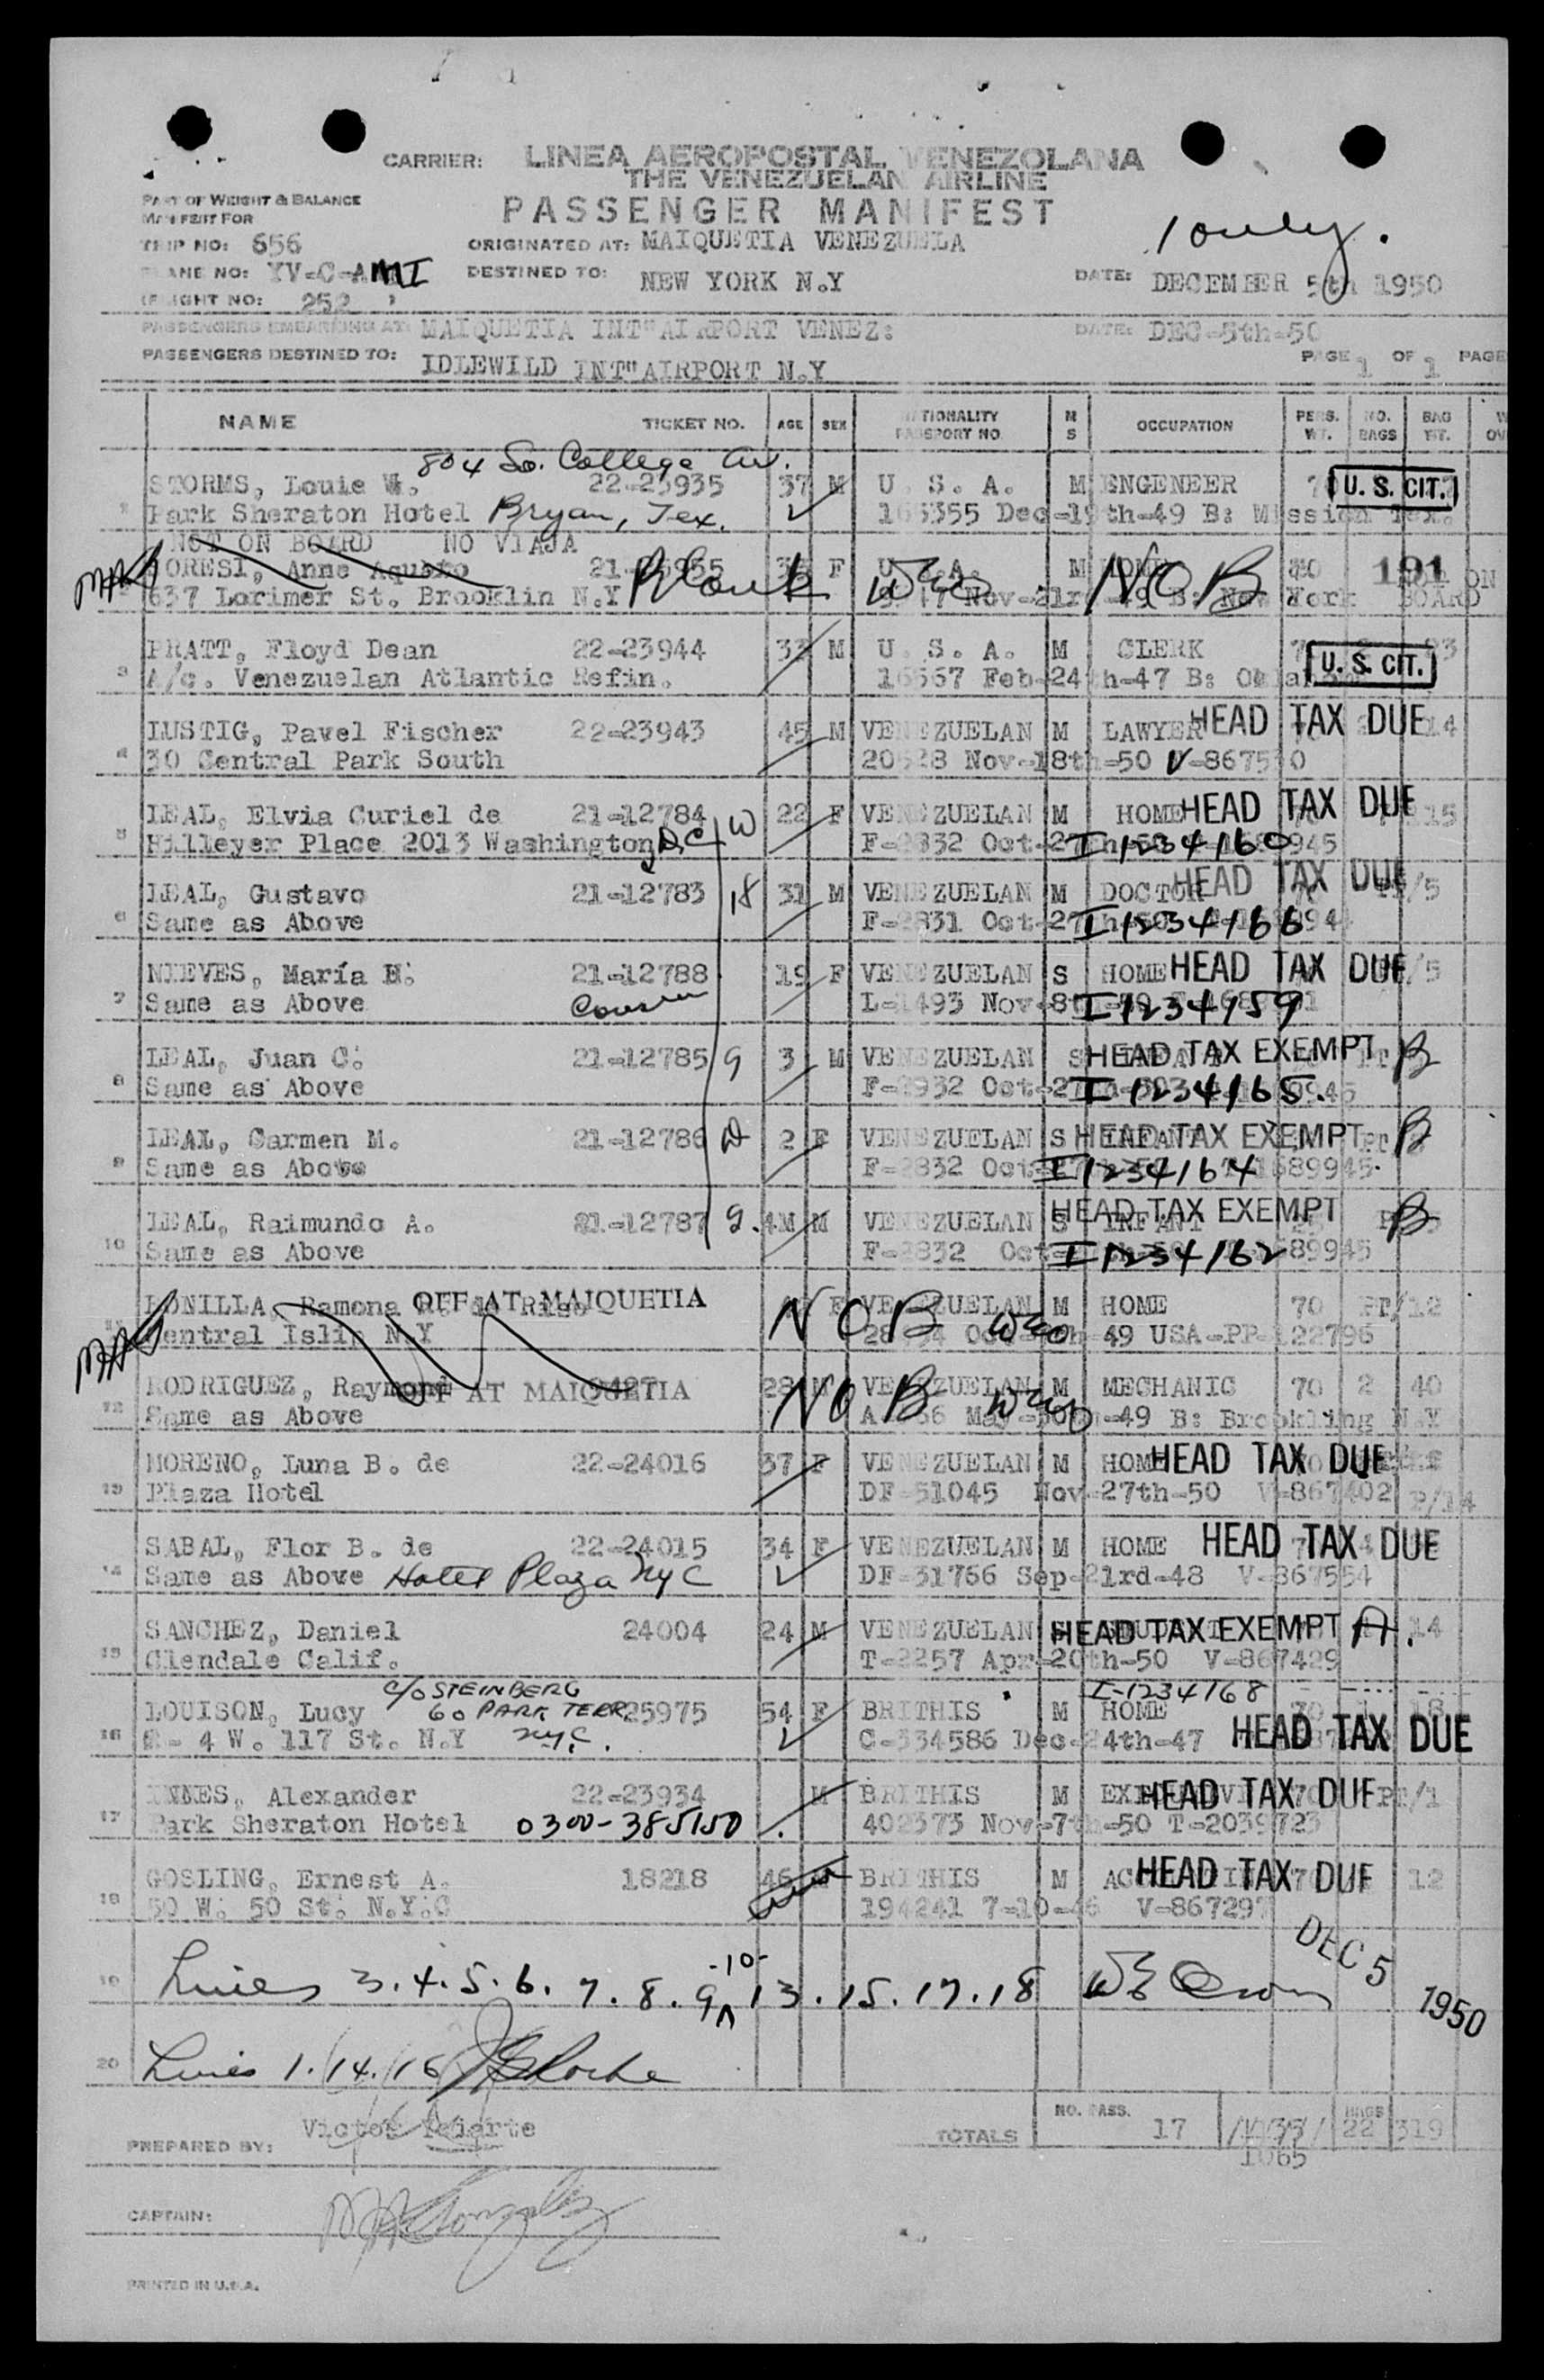 CARRIER: LINEA AEROPOSTAL VENEZOLANA
THE VENEZUELAN AIRLINE
PART OF WEIGHT & BALANCE
MANIFEST FOR
PASSENGER MANIFEST
1 only.
TRIP NO: 656 ORIGINATED AT: MAIQUETIA VENEZUELA
PLANE NO: YV-C-AMI DESTINED TO: NEW YORK N.Y DATE: DECEMBER 5th 1950
(FLIGHT NO: 252 )
PASSENGERS EMBARKING AT: MAIQUETIA INT" AIRPORT VENEZ: DATE: DEC-5th-50
PASSENGERS DESTINED TO: IDLEWILD INT" AIRPORT N.Y PAGE 1 OF 1 PAGE
NAME TICKET NO. AGE SEX NATIONALITY PASSPORT NO M S OCCUPATION PERS. WT. NO. BAGS BAG WT.
804 So. College Av.
STORMS, Louie W. 22-23935 37 M U. S. A. M ENGENEER U. S. CIT.
Park Sheraton Hotel Bryan, Tex. 165355 Dec-19th-49 B: Mission Tex.
NOT ON BOARD NO VIAJA
Anne F M NOB 191
637 Lorimer St. Brooklin N.Y Blank B: New York NOT ON BOARD
3 PRATT, Floyd Dean 22-23944 33 M U. S. A. M CLERK 23
A/c. Venezuelan Atlantic Refin. 16567 Feb-24th-47 B: U. S. CIT.
4 LUSTIG, Pavel Fischer 22-23943 45 M VENEZUELAN M LAWYER HEAD TAX DUE 14
30 Central Park South 20528 Nov-18th-50 V-867510
5 LEAL, Elvia Curiel de 21-12784 W 22 F VENEZUELAN M HOME HEAD TAX DUE 15
Hilleyer Place 2013 Washington D.C F-2832 Oct-27th I 1234160
6 LEAL, Gustavo 21-12783 18 31 M VENEZUELAN M DOCTOR HEAD TAX DUE /5
Same as Above F-2831 Oct-27th I 1234166
7 NIEVES, María H. 21-12788 19 F VENEZUELAN S HOME HEAD TAX DUE /5
Same as Above Cousin L-1493 Nov-8th I 1234159
8 LEAL, Juan C. 21-12785 9 3 M VENEZUELAN S HEAD TAX EXEMPT B
Same as Above F-2932 Oct-27th I 1234165.
9 LEAL, Carmen M. 21-12786 D 2 F VENEZUELAN S INFANT HEAD TAX EXEMPT PT B
Same as Above F-2832 Oct I 1234164 1689945
10 LEAL, Raimundo A. 21-12787 9. 4M M VENEZUELAN S INFANT HEAD TAX EXEMPT B
Same as Above F-2832 Oct I 1234162
BONILLA, Ramona OFF AT MAIQUETIA NOB F VENEZUELAN M HOME 70 PT/12
Central Islip N.Y 49 USA-PP-122796
12 RODRIGUEZ, Raymond OFF AT MAIQUETIA 28 M NOB VENEZUELAN M MECHANIC 70 2 40
Same as Above May-30th-49 B: Brookling N.Y
13 MORENO, Luna B. de 22-24016 37 F VENEZUELAN M HOME HEAD TAX DUE
Plaza Hotel DF-51045 Nov-27th-50 V-867402 P/14
14 SABAL, Flor B. de 22-24015 34 F VENEZUELAN M HOME HEAD TAX DUE
Same as Above Hotel Plaza NYC DF-31766 Sep-21rd-48 V-867554
15 SANCHEZ, Daniel 24004 24 M VENEZUELAN S STUDENT HEAD TAX EXEMPT A. 14
Glendale Calif. T-2257 Apr-20th-50 V-867429
c/o STEINBERG I-1234168
16 LOUISON, Lucy 60 PARK TERR 25975 54 F BRITHIS M HOME 70 18
2- 4 W. 117 St. N.Y NYC. C-334586 Dec-24th-47 HEAD TAX DUE
17 INNES, Alexander 22-23934 M BRITHIS M HEAD TAX DUE PT/1
Park Sheraton Hotel 0300-385150 402373 Nov-7th-50 T-2039723
18 GOSLING, Ernest A. 18218 46 M BRITHIS M HEAD TAX DUE 12
50 W. 50 St. N.Y.C 194241 7-10-46 V-867297
DEC 5 1950
19 Lines 3.4.5.6.7.8.9 -10- 13.15.17.18
20 Lines 1.14.16
PREPARED BY: Victor TOTALS NO. PASS. 17 1035 BAGS 22 319
1065
CAPTAIN:
PRINTED IN U.S.A.